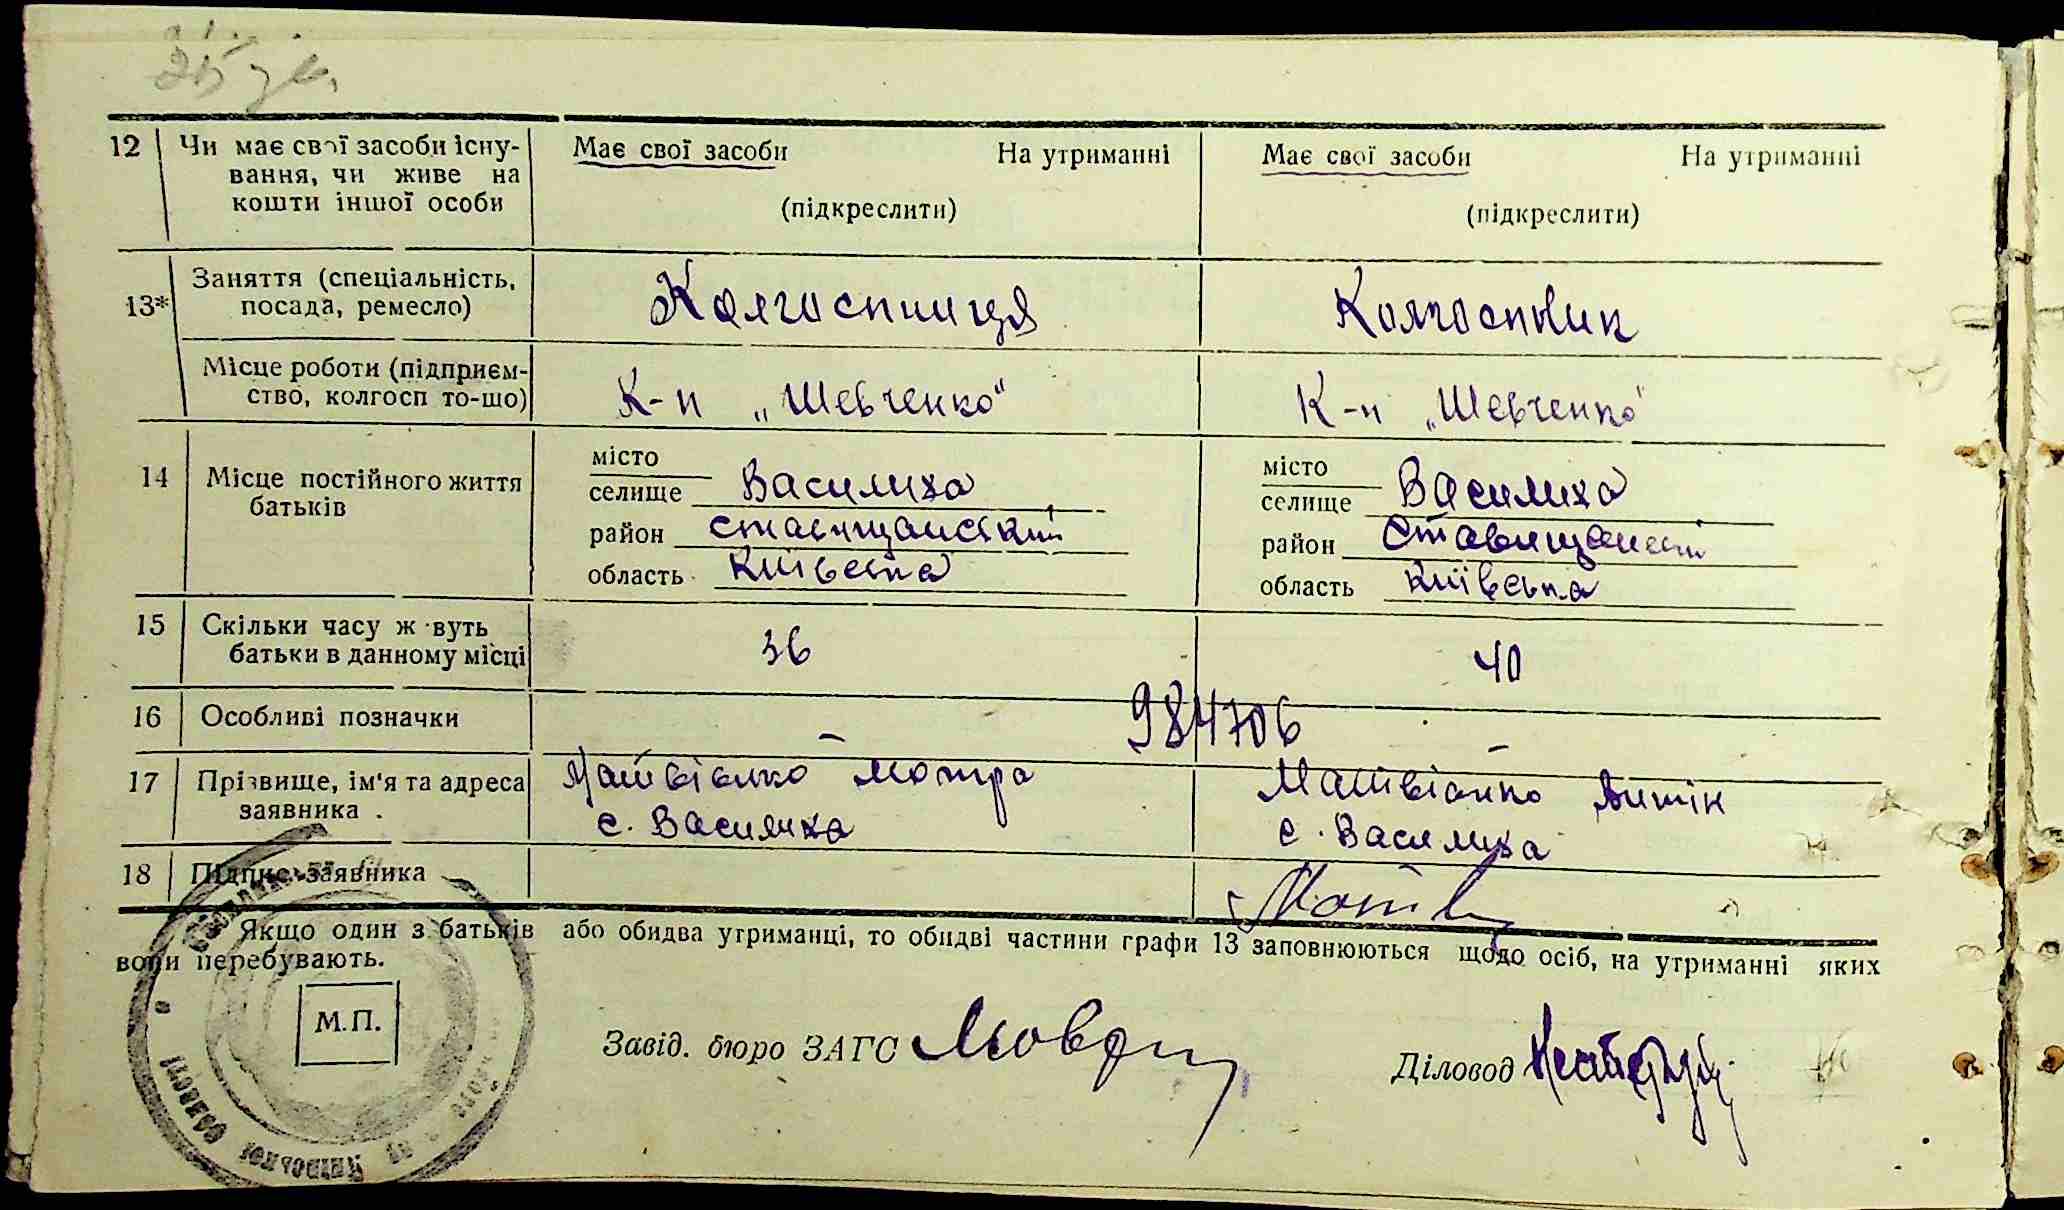 12 Чи має свої засоби існу-
вання, чи живе на
кошти іншої особи
Має свої засоби На утриманні
(підкреслити)
Має свої засоби На утриманні
(підкреслити)
13* Заняття (спеціальність,
посада, ремесло)
Колгоспниця
Колгоспник
Місце роботи (підприєм-
ство, колгосп то-що)
К-п „Шевченко"
К-п „Шевченко"
14 Місце постійного життя
батьків
місто
селище Василиха
район Ставищанський
область Київська
місто
селище Василиха
район Ставищанськ
область Київська
15 Скільки часу ж вуть
батьки в данному місці
36
40
16 Особливі позначки
–
984706
–
17 Прізвище, ім'я та адреса
заявника .
Матвієнко Мотря
с. Василиха
Матвієнко
с. Василиха
18 Підпис заявника
Якщо один з батьків або обидва утриманці, то обидві частини графи 13 заповнюються щодо осіб, на утриманні яких
вони перебувають.
М.П.
Завід. бюро ЗАГС
Діловод
Київської області